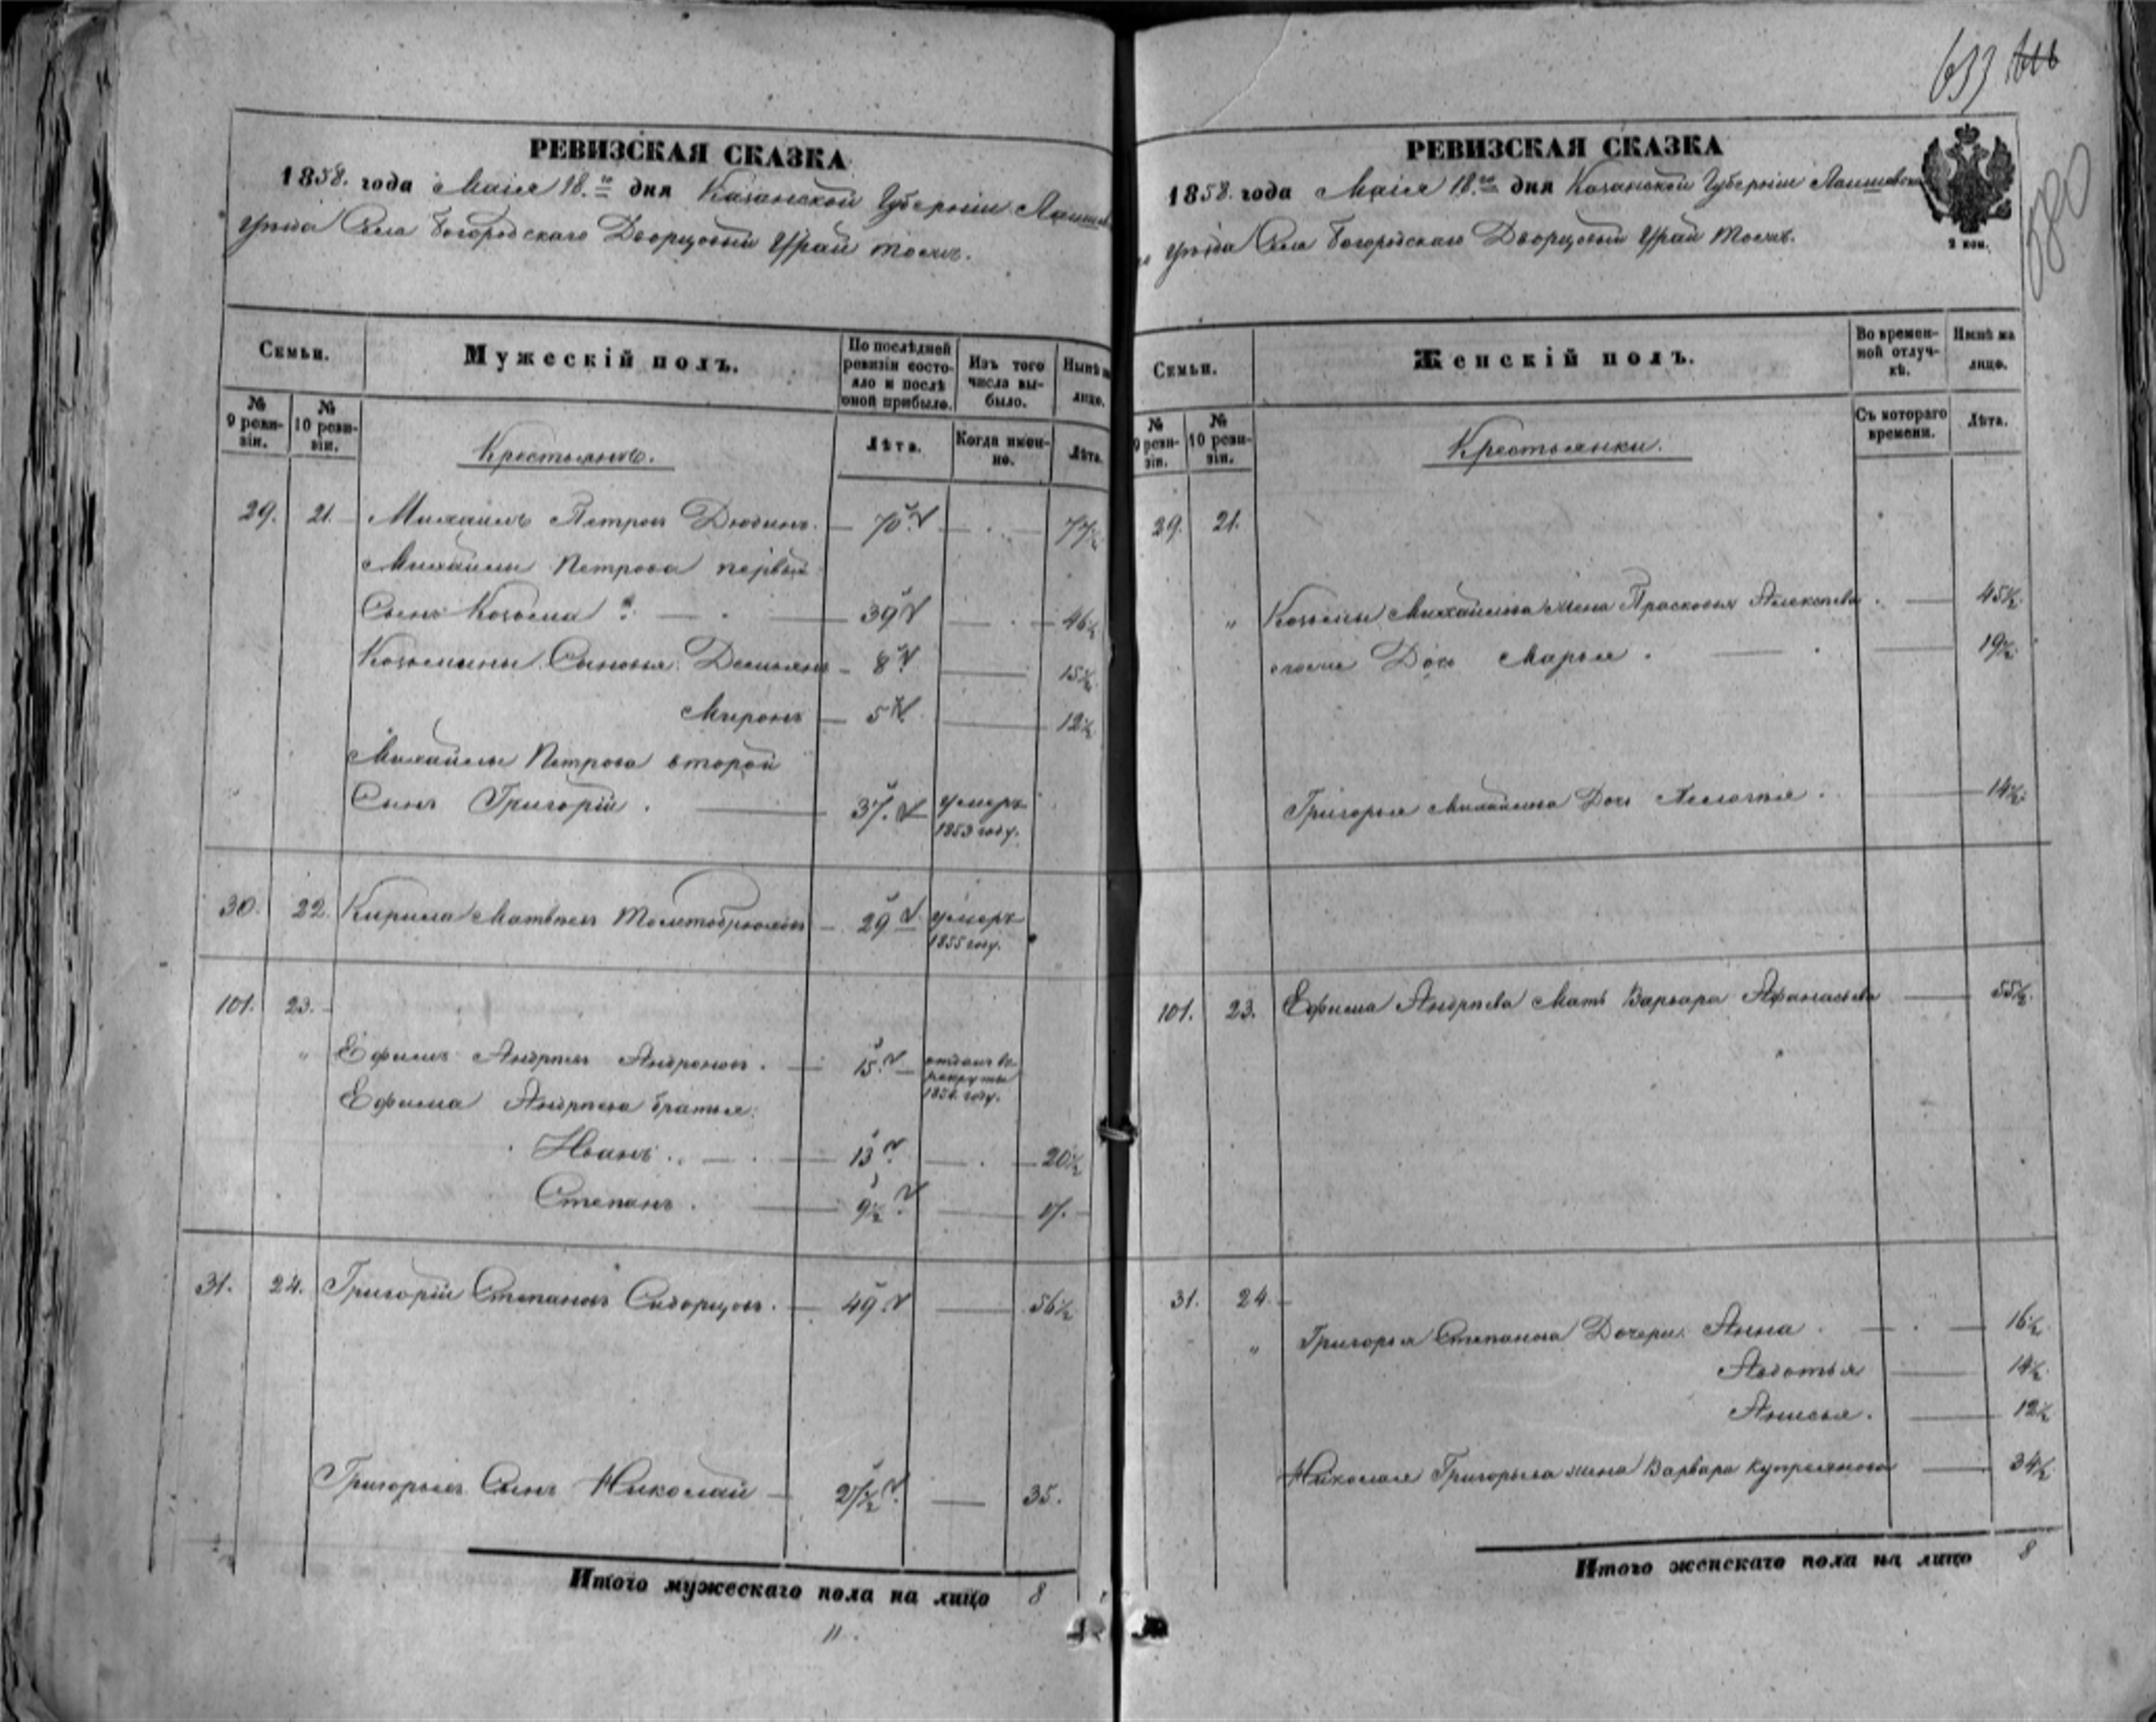 633
580
РЕВИЗСКАЯ СКАЗКА
1858. года Маія 18.го дня Казанской Губерніи Лаишев
уѣзда Села Богородскаго Дворцовый Урай тожъ.
Семьи.
Мужескій полъ.
По послѣдней ревизіи состояло и послѣ оной прибыло.
Изъ того числа выбыло.
Нынѣ на лицо.
№ 9 ревизіи.
№ 10 ревизіи.
Крестьянъ.
Лѣта.
Когда именно.
Лѣта.
29. 21. Михаилъ Петровъ Дюдинъ. 70. 77½
Михаилы Петрова первый
Сынъ Козьма 39 46½
Козьмины Сыновья: Демьянъ 8 15½
Миронъ 5 12½
Михаилы Петрова второй
Сынъ Григорій. 37. умеръ 1853 году.
30. 22. Кирила Матвѣевъ 29 умеръ 1855 году.
101. 23.
" Ефимъ Андреевъ Андроновъ. 15. отданъ въ рекруты году.
Ефима Андреева братья:
Иванъ. 13 20½
Степанъ. 9½ 17.
31. 24. Григорій Степановъ Сидорцовъ. 49. 56½
Григорьевъ Сынъ Николай 27½ 35.
Итого мужескаго пола на лицо 8
РЕВИЗСКАЯ СКАЗКА
1858. года Маія 18.го дня Казанской Губерніи Лаишевска
го уѣзда Села Богородскаго Дворцовый Урай тожъ.
2 коп.
Семьи.
Женскій полъ.
Во временной отлучкѣ.
Нынѣ на лицо.
№ 9 ревизіи.
№ 10 ревизіи.
Крестьянки.
Съ котораго времени.
Лѣта.
29. 21.
" Козьмы Михайлова жена Прасковья Алексѣева. 45½
Дочь Марья. 19½
Григорья Михайлова Дочь 14½
101. 23. Ефима Андреева Мать Варвара Афанасьева 55½
31. 24.
" Григорья Степанова Дочери: Анна. 16½
Авдотья 14½
Анисья. 12½
Николая Григорьева жена Варвара Купреянова 34½
Итого женскаго пола на лицо 8